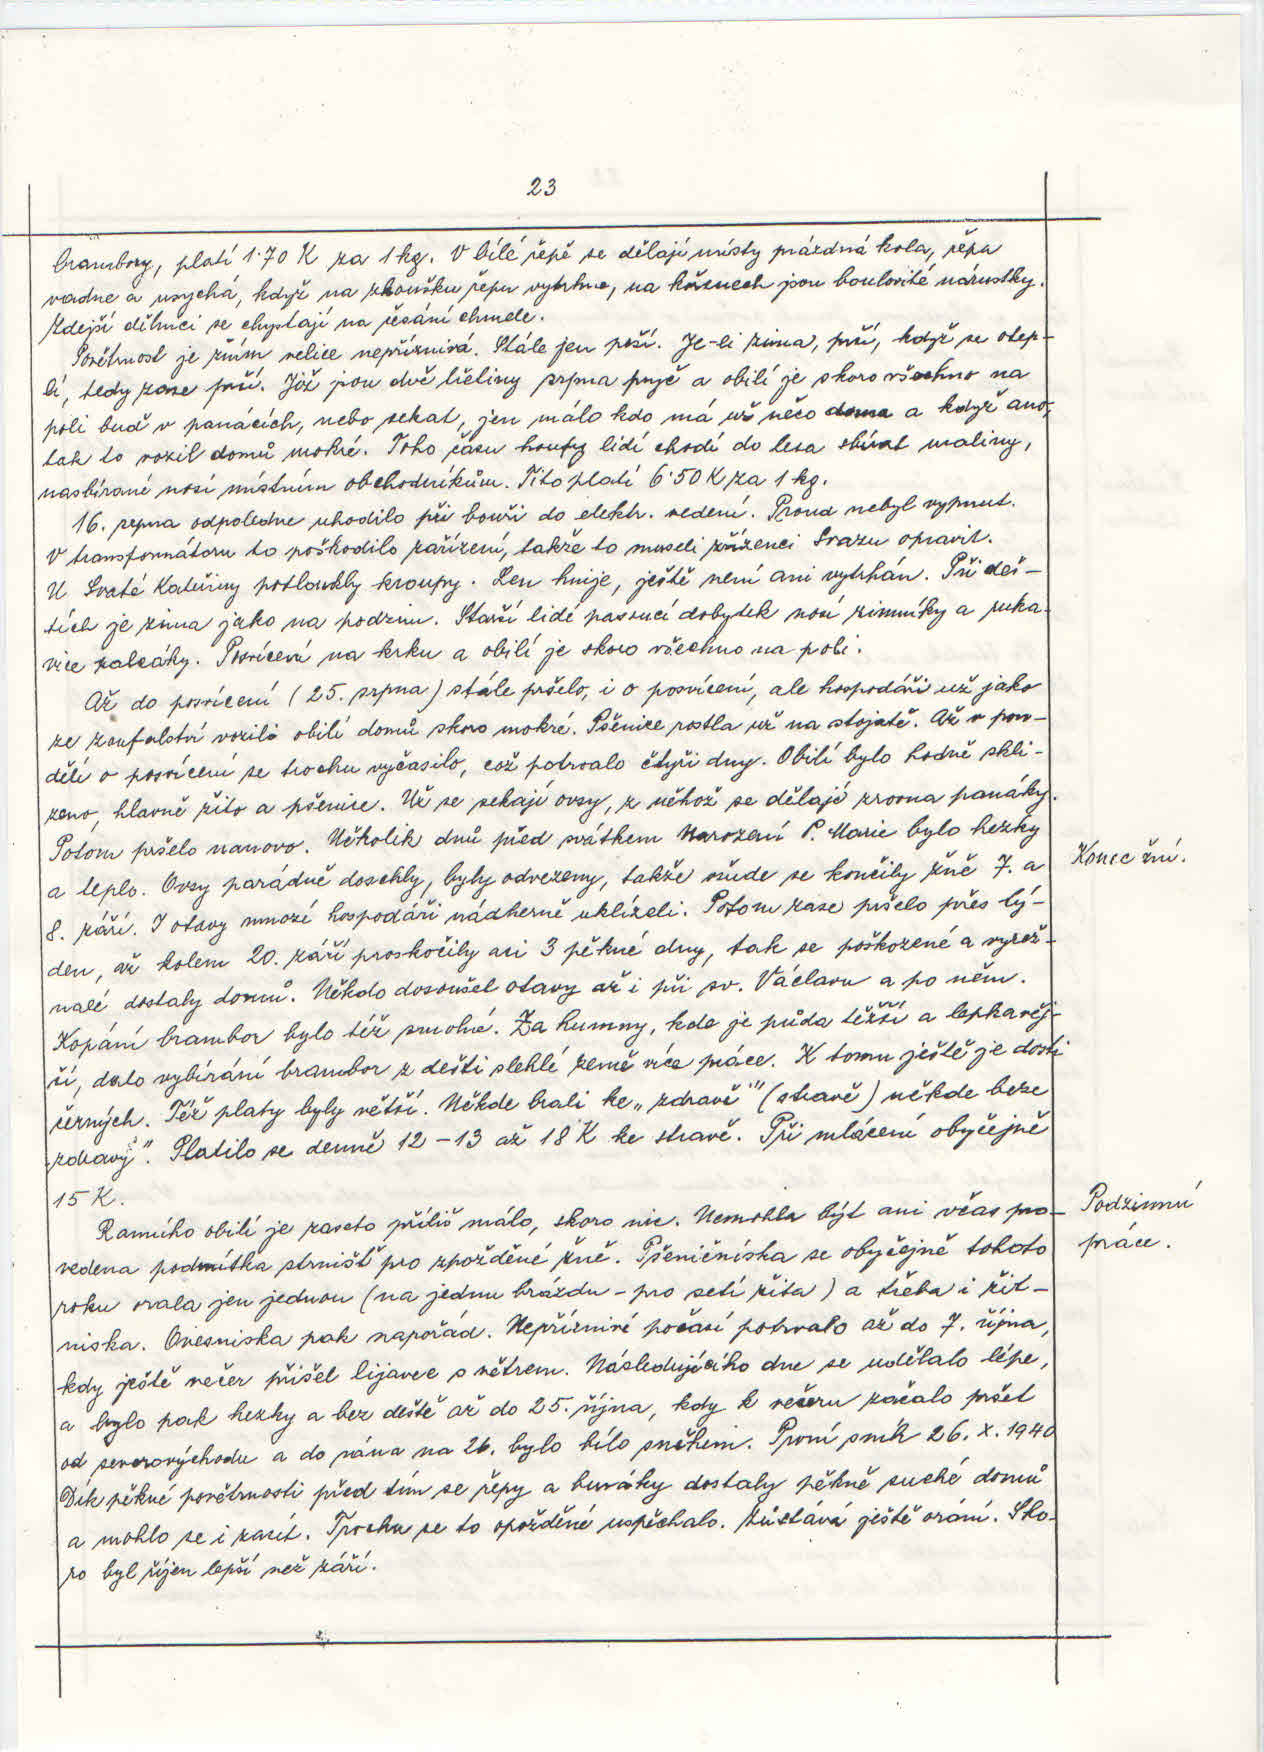 23
brambory, platí 1·70 K za 1 kg. V bílé řepě se dělají místy prázdná kola, řepa
vadne a usychá, když na zkoušku řepu vytrhne, na kořenech jsou boulovité nárustky.
Zdejší dělníci se chystají na česání chmele.
Povětrnost je žním velice nepříznivá. Stále jen prší. Je-li zima, prší, když se otep-
lí, tedy zase prší. Již jsou dvě třetiny srpna pryč a obilí je skoro všechno na
poli buď v panácích, nebo sekat, jen málo kdo má už něco doma a když ano,
tak to vozil domů mokré. Toho času houfy lidí chodí do lesa sbírat maliny,
nasbírané nosí místním obchodníkům. Tito platí 6·50 K za 1 kg.
16. srpna odpoledne uhodilo při bouři do elektr. vedení. Proud nebyl vypnut.
V transformátoru to poškodilo zařízení, takže to museli zřízenci Svazu opravit.
U Svaté Kateřiny potloukly kroupy. Len hnije, ještě není ani vytrhán. Při deš-
tích je zima jako na podzim. Starší lidé pasoucí dobytek nosí zimníky a ruka-
vice palčáky. Posvícení na krku a obilí je skoro všechno na poli.
Až do posvícení (25. srpna) stále pršelo, i o posvícení, ale hospodáři už jako
ze zoufalství vozili obilí domů skoro mokré. Pšenice rostla už na stojatě. Až v pon-
dělí o posvícení se trochu vyčasilo, což potrvalo čtyři dny. Obilí bylo hodně skli-
zeno, hlavně žito a pšenice. Už se sekají ovsy, z něhož se dělají zrovna panáky.
Potom pršelo nanovo. Několik dnů před svátkem Narození P. Marie bylo hezky
a teplo. Ovsy parádně doschly, byly odvezeny, takže všude se končily žně 7. a
Konec žní.
8. září. I otavy mnozí hospodáři nádherně uklízeli. Potom zase pršelo přes tý-
den, až kolem 20. září proskočily asi 3 pěkné dny, tak se poškozené a vyrež-
nalé dostaly domů. Někdo dosoušel otavy až i při sv. Václavu a po něm.
Kopání brambor bylo též smolné. Za humny, kde je půda těžší a lepkavěj-
ší, dalo vybírání brambor z dešti slehlé země více práce. K tomu ještě je dosti
černých. Též platy byly větší. Někde brali ke „zdravě" (stravě) někde beze
„zdravy". Platilo se denně 12 – 13 až 18 K ke stravě. Při mlácení obyčejně
15 K.
Ranního obilí je zaseto příliš málo, skoro nic. Nemohla být ani včas pro-
Podzimní
vedena podmítka strnišť pro zpožděné žně. Pšeničníska se obyčejně tohoto
práce.
roku orala jen jednou (na jednu brázdu – pro setí žita) a třeba i žit-
niska. Ovesniska pak napořád. Nepříznivé počasí potrvalo až do 7. října,
kdy ještě večer přišel lijavec s větrem. Následujícího dne se udělalo lépe,
a bylo pak hezky a bez deště až do 25. října, kdy k večeru začalo pršet
od severovýchodu a do rána na 26. bylo bílo sněhem. První sníh 26. X. 1940
Dík pěkné povětrnosti před tím se řepy a buráky dostaly pěkně suché domů
a mohlo se i zasít. Trochu se to opožděné uspěchalo. Zůstává ještě orání. Sko-
ro byl říjen lepší než září.